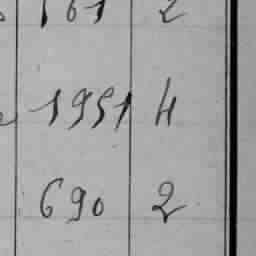 161 2
1951 4
690 2